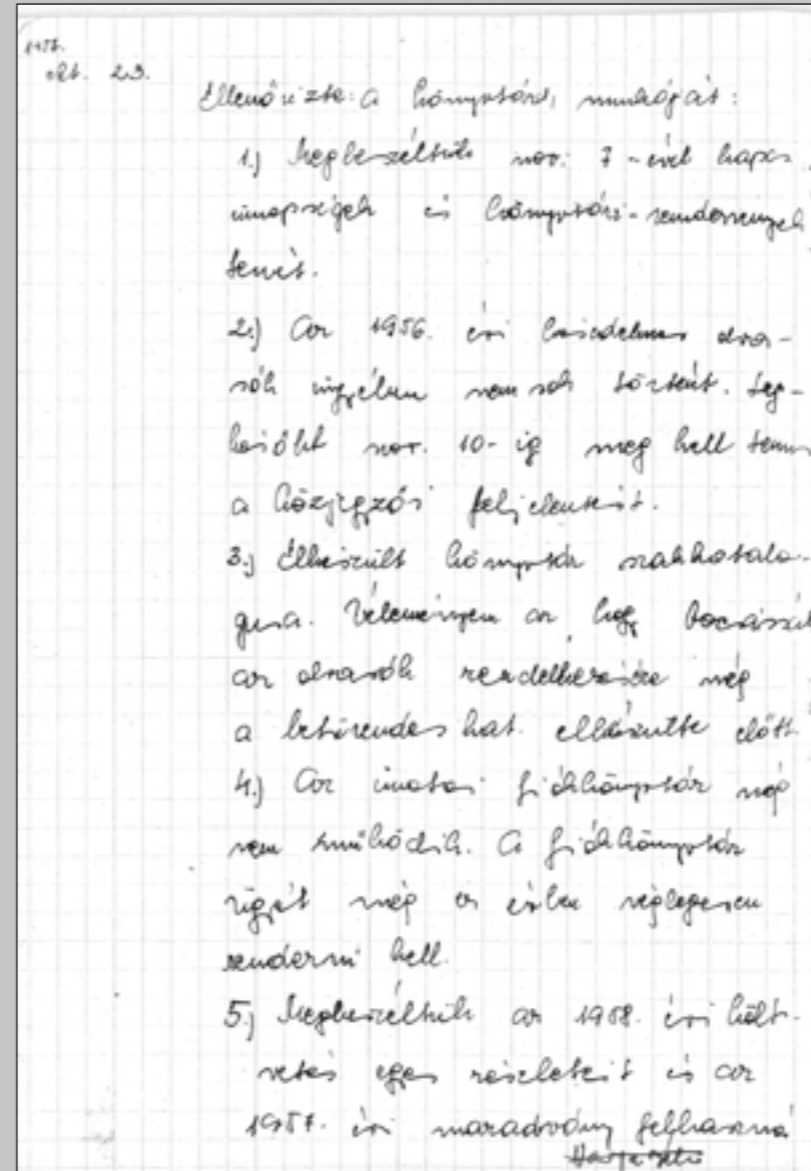 1957.
okt. 29.
Ellenőrizte: a könyvtár, munkáját:
1.) Megbeszéltük nov. 7-ével kapcs.
ünnepségek és könyvtári-rendezvények
tervét.
2.) Az 1956. évi késedelmes olva-
sók ügyében nem sok történt. Leg-
később nov. 10-ig meg kell tenni
a közjegyzői feljelentést.
3.) Elkészült könyvtár szakkataló-
gusa. Véleményem az, hogy bocsássák
az olvasók rendelkezésére még
a betűrendes kat. elkészülte előtt.
4.) Az fiókkönyvtár még
nem működik. A fiókkönyvtár
ügyét még ez évben véglegesen
rendezni kell.
5.) Megbeszéltük az 1958. évi költ-
vetés egyes részleteit és az
1957. évi maradvány felhaszná